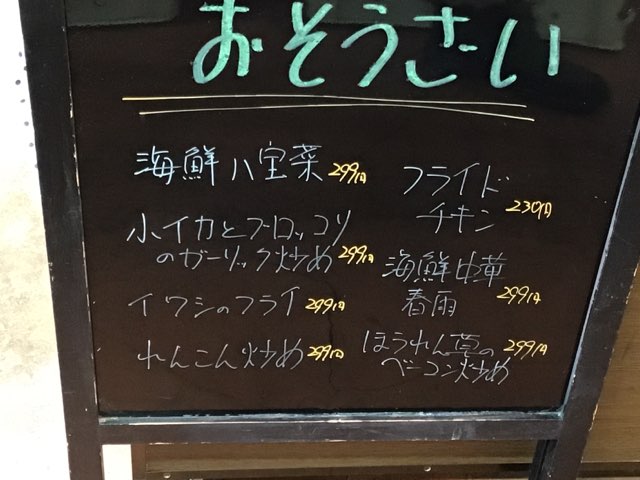 おそうざい
海鮮八宝菜 299円
小イカとブロッコリ
のガーリック炒め 299円
イワシのフライ 299円
れんこん炒め 299円
フライド
チキン 230円
海鮮中華
春雨 299円
ほうれん草の 299円
ベーコン炒め